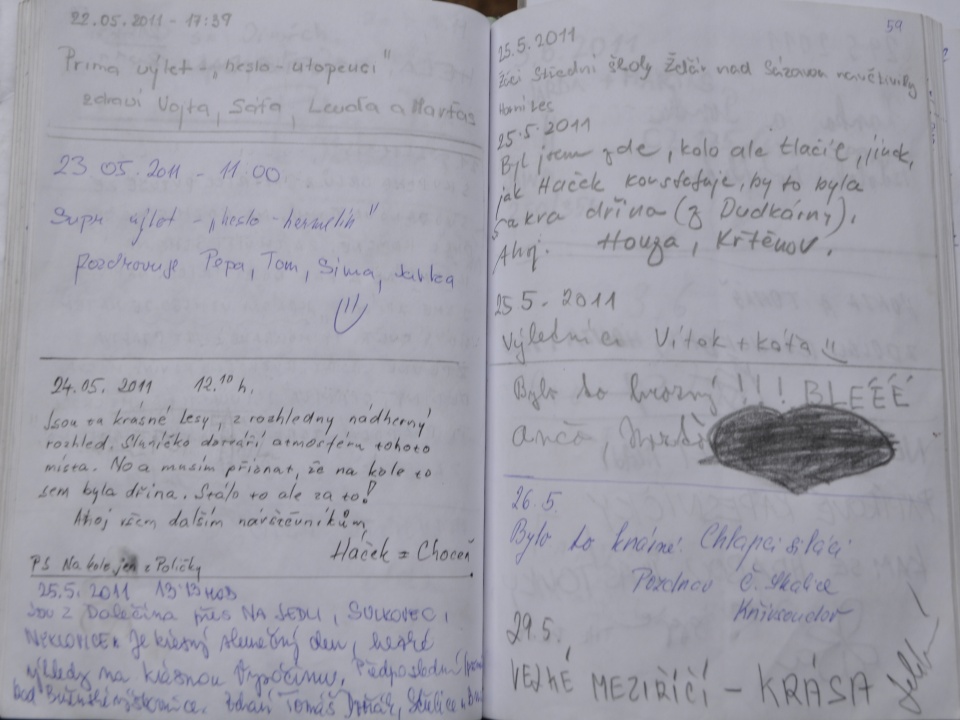 22.05.2011 - 17:39
Prima výlet - „heslo - utopenci"
zdraví Vojta, Saťa, Leuďa a Marťas
23 05.2011 - 11.00
Supr výlet - „heslo - hermelín"
Pozdravuje Pepa, Tom, Sima,
24.05. 2011 12.10 h.
Jsou tu krásné lesy, z rozhledny nádherný
rozhled. Sluníčko dotváří atmosféru tohoto
místa. No a musím přiznat, že na kole to
sem byla dřina. Stálo to ale za to!
Ahoj všem dalším návštěvníkům
Háček = Choceň
PS Na kole jen z Poličky
25.5. 2011 13:13 HOD
Jsou z Dalečína přes NA SEDLI, SULKOVEC,
Je krásný slunečný den, hezké
výhledy na krásnou Vysočinu, Předposlední
Zdraví Tomáš
59
25.5.2011
Žáci Střední školy Žďár nad Sázavou navštívily
Horní Les
25.5.2011
Byl jsem zde, kolo ale tlačil, jinak,
jak Háček konstatuje, by to byla
sakra dřina (z Dudkárny).
Ahoj. Houza, Křtěnov.
25 5. 2011
Výletníci Vítek + Káťa
Bylo to hrozný!!! BLÉÉÉ
Anča,
26.5.
Bylo to krásné. Chlapci siláci
Pozdrav Č. Skalice
29.5.
VELKÉ MEZIŘÍČÍ - KRÁSA